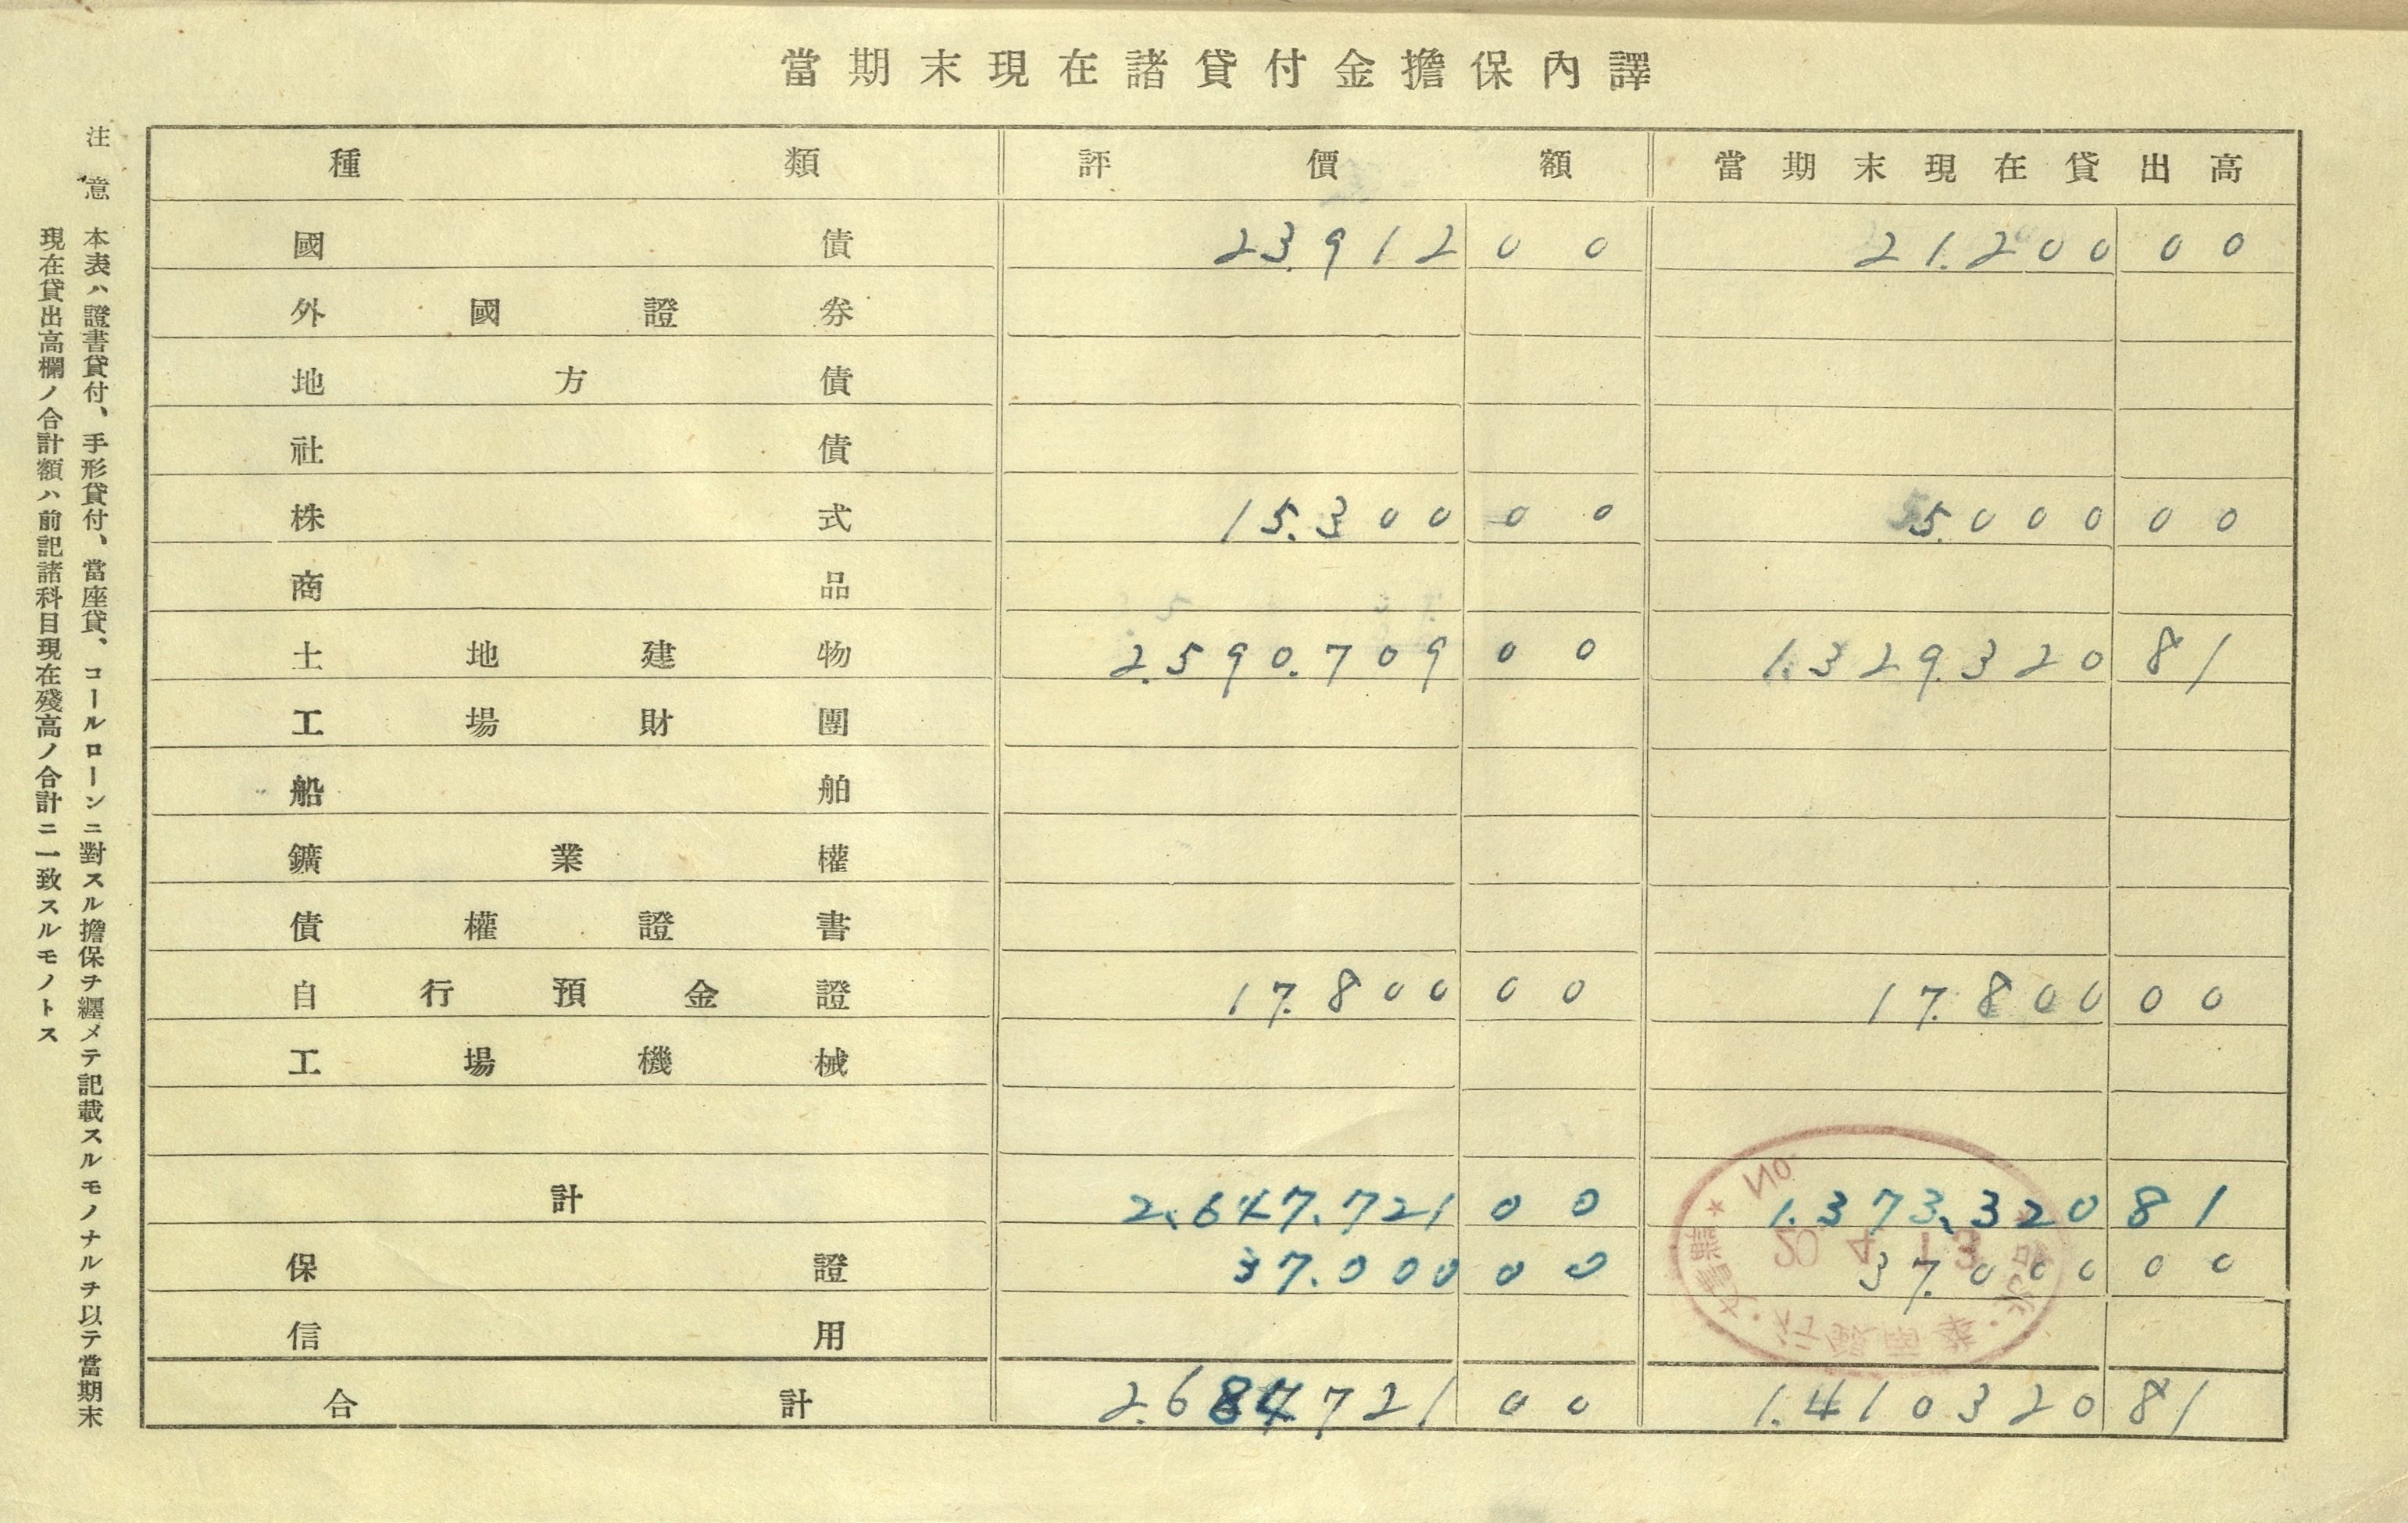 當期末現在諸貸付金擔保內譯
種類 評價額 當期末現在貸出高
國債 23.912 00 21.200 00
外國證券
地方債
社債
株式 15.300 00 5.000 00
商品
土地建物 2.590.709 00 1.329.320 81
工場財團
船舶
鑛業權
債權證書
自行預金證 17.800 00 17.800 00
工場機械
計 2.647.721 00 1.373.320 81
保證 37.000 00 37.000 00
信用
合計 2.684721 00 1.410320 81
No.
20 4 13
注意
本表ハ證書貸付、手形貸付、當座貸、コールローンニ對スル擔保ヲ纒メテ記載スルモノナルヲ以テ當期末
現在貸出高欄ノ合計額ハ前記諸科目現在殘高ノ合計ニ一致スルモノトス